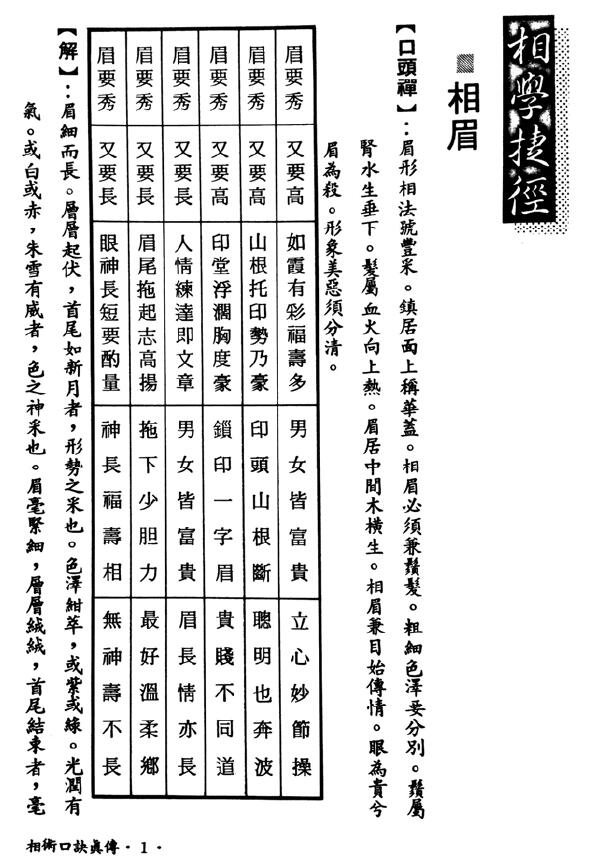 相學捷徑
相眉
【口頭禪】：眉形相法號豐采。鎮居面上稱華蓋。相眉必須兼鬚髮。粗細色澤要分別。鬚屬
腎水生垂下。髮屬血火向上熱。眉居中間木橫生。相眉兼目始傳情。眼為貴兮
眉為殺。形象美惡須分清。
眉要秀 又要高 如霞有彩福壽多 男女皆富貴 立心妙節操
眉要秀 又要高 山根托印勢乃豪 印頭山根斷 聰明也奔波
眉要秀 又要高 印堂浮濶胸度豪 鎖印一字眉 貴賤不同道
眉要秀 又要長 人情練達即文章 男女皆富貴 眉長情亦長
眉要秀 又要長 眉尾拖起志高揚 拖下少胆力 最好溫柔鄉
眉要秀 又要長 眼神長短要酌量 神長福壽相 無神壽不長
【解】：眉細而長。層層起伏，首尾如新月者，形勢之采也。色澤紺萃，或紫或綠。光潤有
氣。或白或赤，朱雪有威者，色之神采也。眉毫緊細，層層絨絨，首尾結束者，毫
相術口訣眞傳・1・